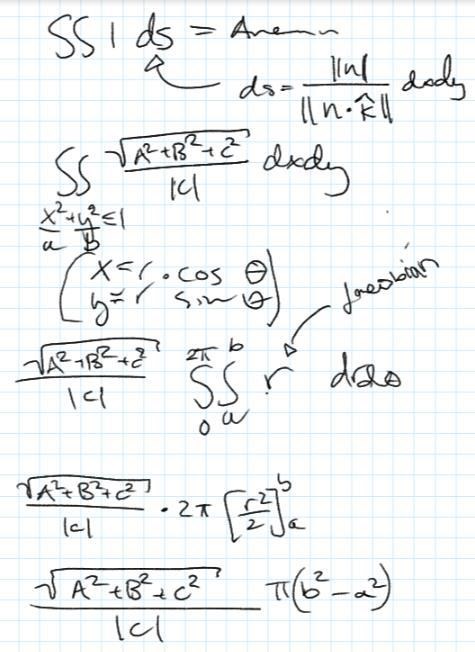 SS 1 ds = Area
ds = ||n|| / ||n·k̂|| dxdy
SS √(A²+B²+C²) / |C| dxdy
x²/a + y²/b ≤ 1
(x = r · cos θ
y = r sin θ)
Jacobian
√(A²+B²+C²) / |C| 2π b SS 0 a r drdθ
√(A²+B²+C²) / |C| · 2π [r²/2]ᵇₐ
√(A²+B²+C²) / |C| π(b²−a²)